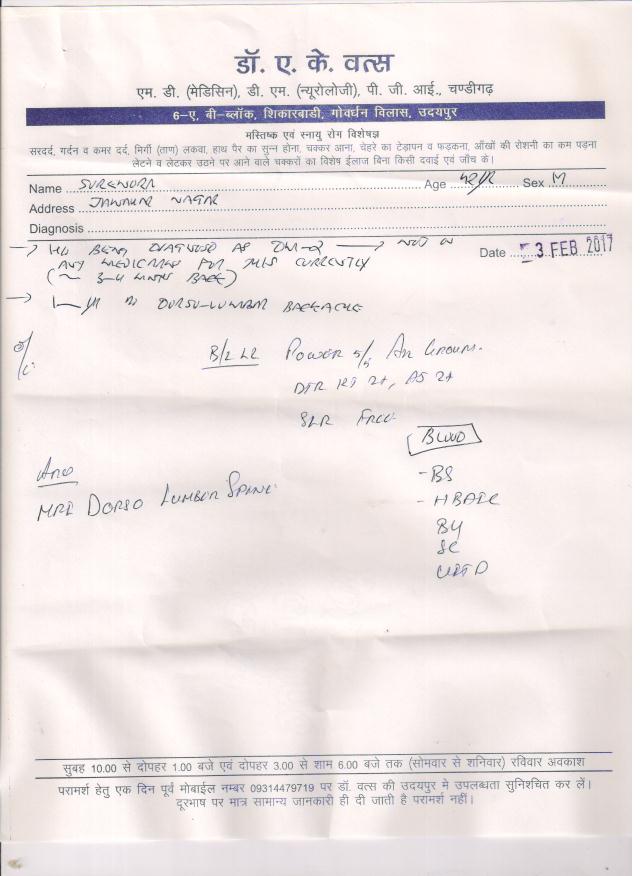 डॉ. ए. के. वत्स
एम. डी. (मेडिसिन), डी. एम. (न्यूरोलोजी), पी. जी. आई., चण्डीगढ़
6-ए, बी-ब्लॉक, शिकारबाडी, गोवर्धन विलास, उदयपुर
मस्तिष्क एवं स्नायु रोग विशेषज्ञ
सरदर्द, गर्दन व कमर दर्द, मिर्गी (ताण) लकवा, हाथ पैर का सुन्न होना, चक्कर आना, चेहरे का टेड़ापन व फड़कना, आँखों की रोशनी का कम पड़ना
लेटने व लेटकर उठने पर आने वाले चक्करों का विशेष ईलाज बिना किसी दवाई एवं जाँच के।
Name SURENDRA Age 42 Yr Sex M
Address JAWAHAR NAGAR
Diagnosis
→ H/o BEING DIAGNOSED AS DM-2 → NOT ON
ANY MEDICINES FOR THIS CURRENTLY
(~ 3-4 MONTHS BACK)
Date 3 FEB 2017
→ DORSO-LUMBAR BACKACHE
O/E:
B/L LL POWER 5/5 ALL GROUPS.
DTR KJ 2+, AJ 2+
SLR FREE
BLOOD
Adv
MRI DORSO LUMBER SPINE
- BS
- HBA1C
BU
SC
VIT D
सुबह 10.00 से दोपहर 1.00 बजे एवं दोपहर 3.00 से शाम 6.00 बजे तक (सोमवार से शनिवार) रविवार अवकाश
परामर्श हेतु एक दिन पूर्व मोबाईल नम्बर 09314479719 पर डॉ. वत्स की उदयपुर मे उपलब्धता सुनिश्चित कर लें।
दूरभाष पर मात्र सामान्य जानकारी ही दी जाती है परामर्श नहीं।